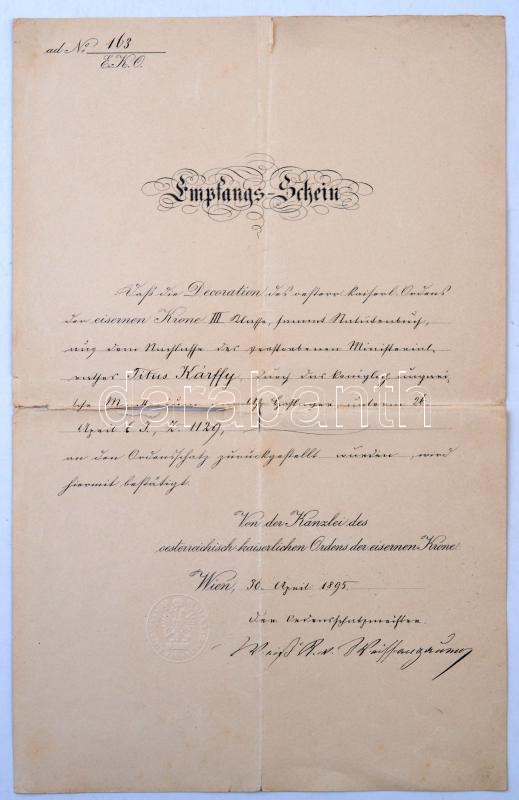 ad No. 163
E.K.O.
Empfangs-Schein
Daß die Decoration des oesterr. kaiserl. Ordens
der eisernen Krone III Klasse, sammt Statutenbuch,
aus dem Nachlasse des verstorbenen Ministerial,
rathes Titus Kárffy, durch das königlich ungari,
sche unterm 26
April l. J., Z. 1129,
an den Ordensschatz zurückgestellt wurden, wird
hiermit bestätigt.
Von der Kanzlei des
oesterreichisch-kaiserlichen Ordens der eisernen Krone.
Wien, 30. April 1895.
Der Ordensschatzmeister.
darabanth